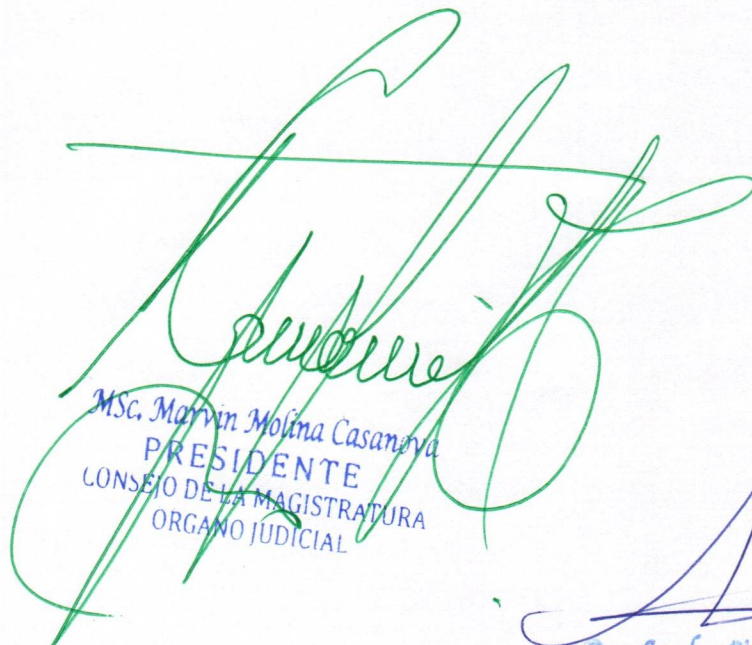 MSc. Marvin Molina Casanova
PRESIDENTE
CONSEJO DE LA MAGISTRATURA
ORGANO JUDICIAL